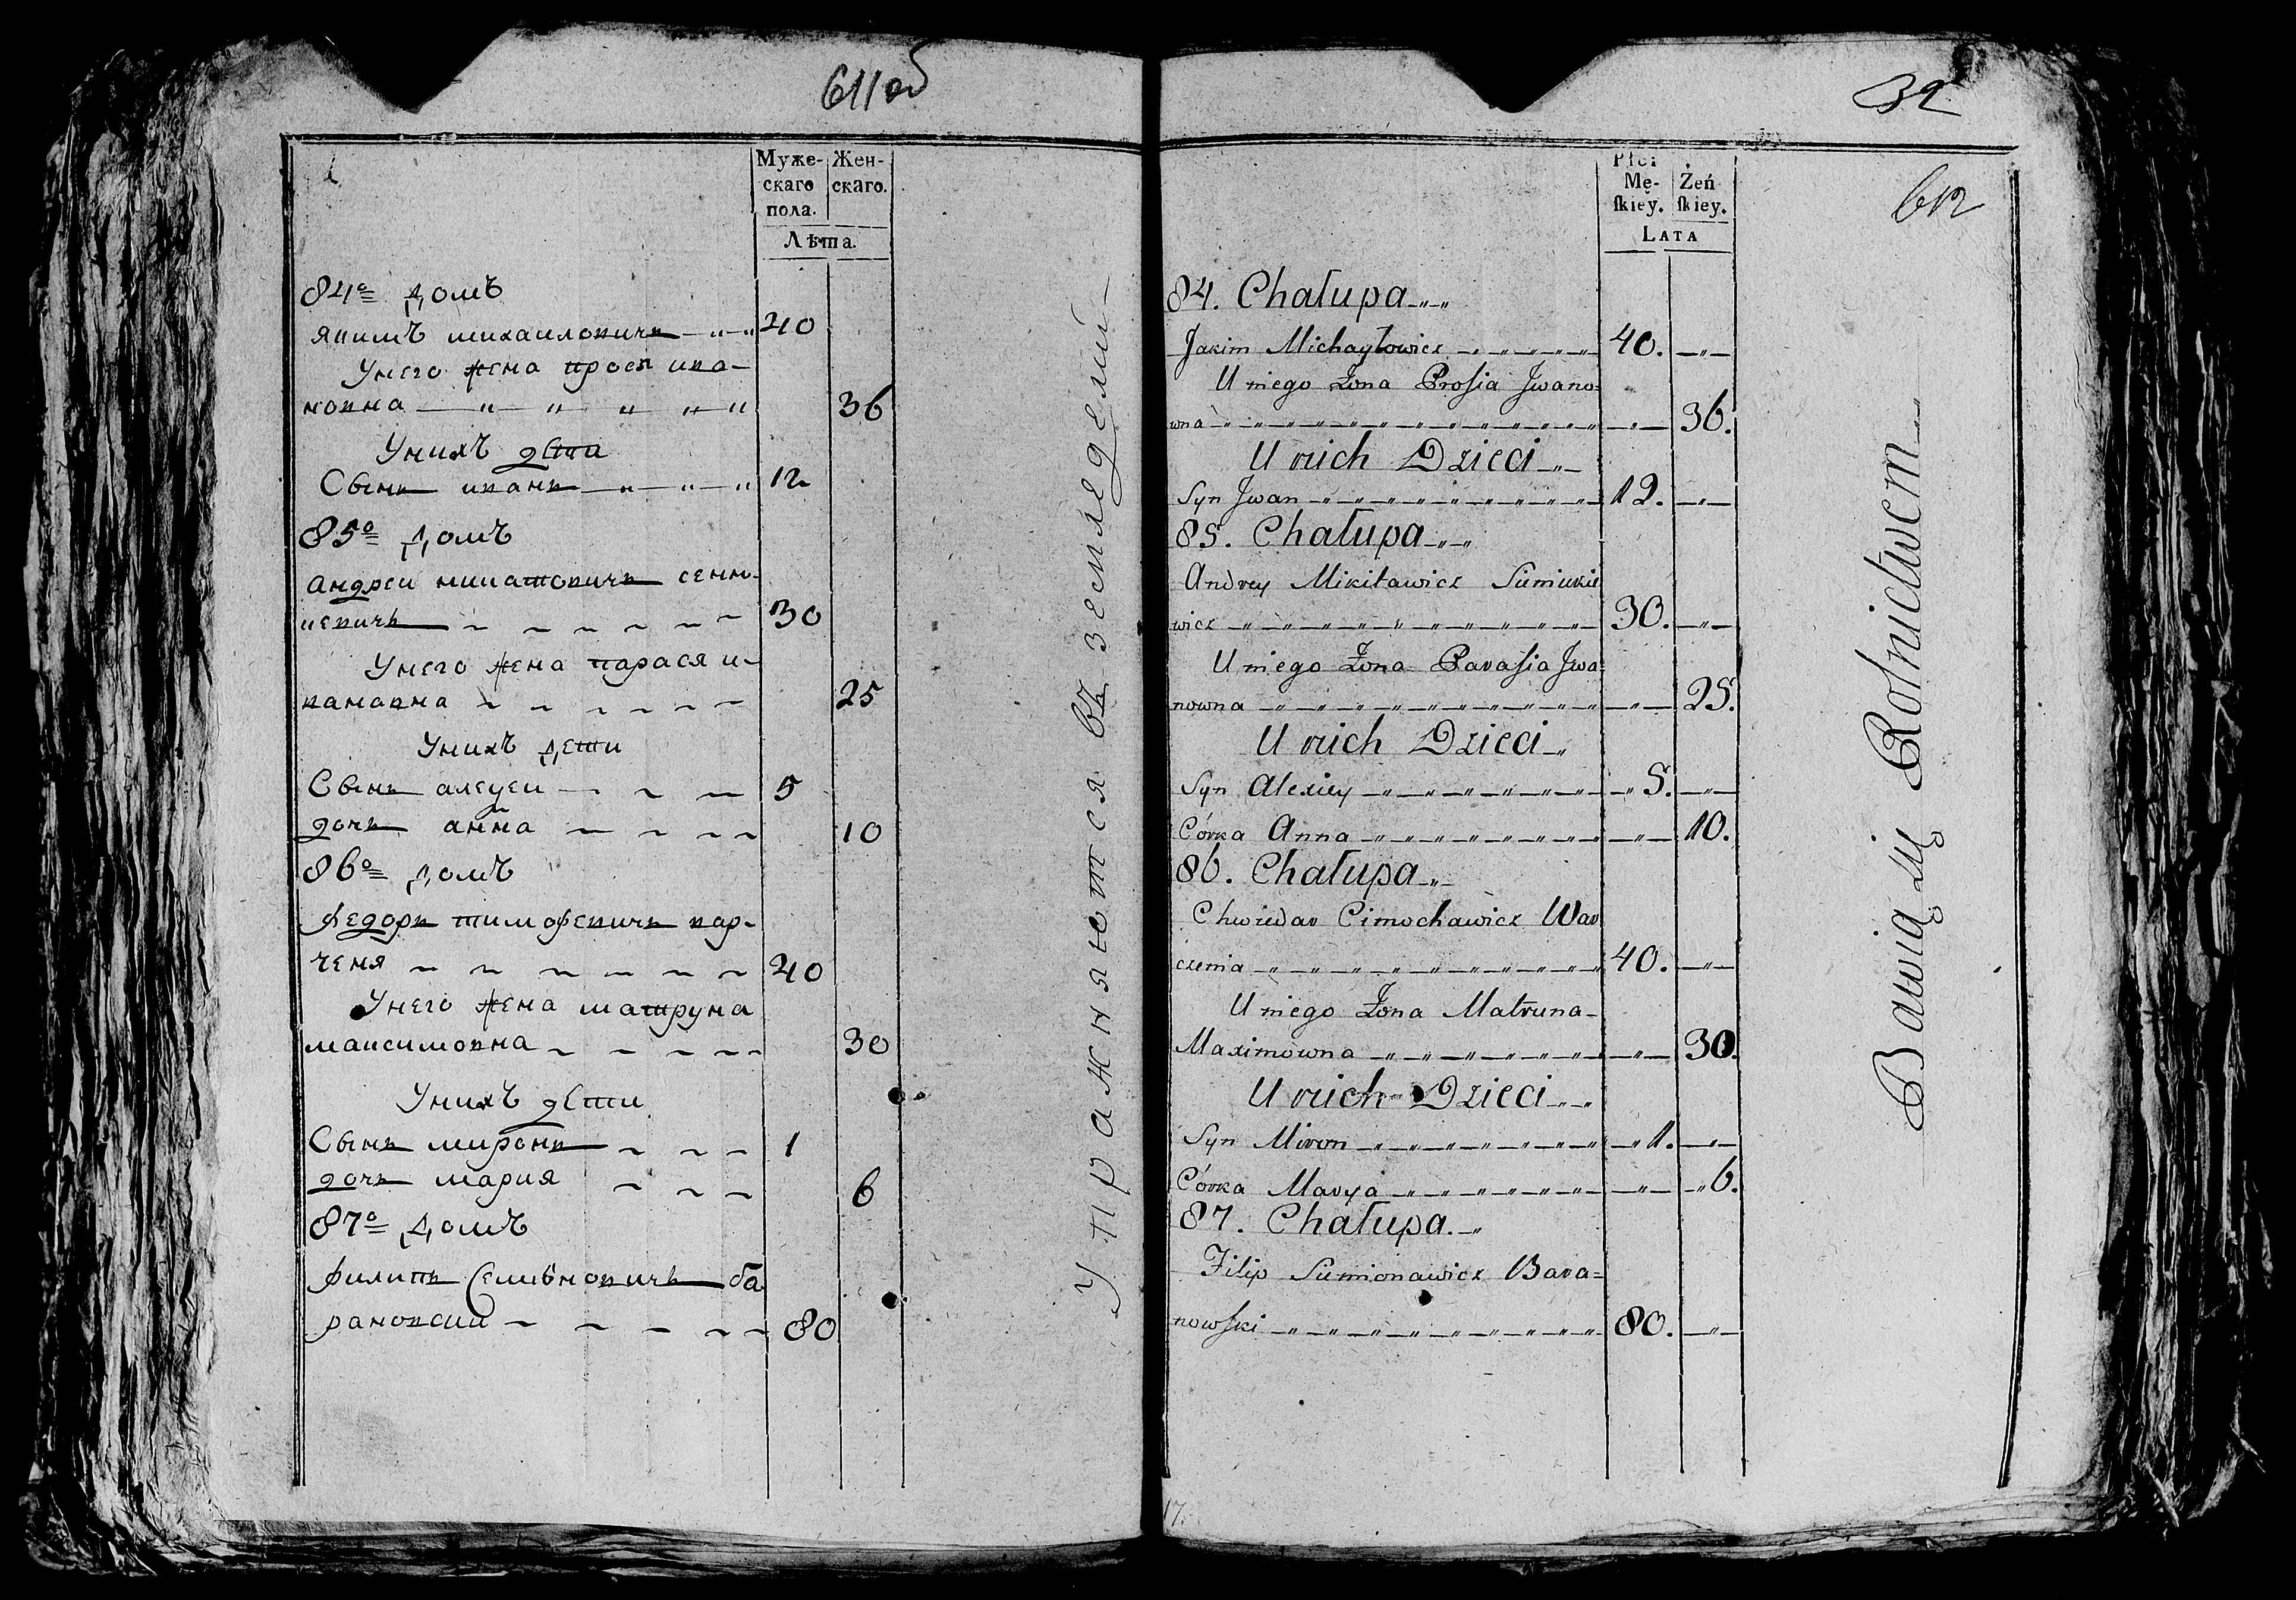 611 об
Муже- Жен-
скаго скаго.
пола.
Лѣта.
84о домъ
якимъ михаиловичъ 40
Унего жена прося ива-
новна 36
Унихъ дѣти
Сынъ иванъ 12
85о домъ
андреи микитовичъ семи-
кевичъ 30
Унего жена парася и-
вановна 25
Унихъ дети
Сынъ алецеи 5
дочь анна 10
86о домъ
федоръ тимофевичъ вар-
ченя 40
Унего жена матруна
максимовна 30
Унихъ дѣти
Сынъ миронъ 1
дочь мария 6
87о домъ
филипъ Семіоновичъ ба
рановски 80
Упражняются въ земледеліи
32
612
Płci
Mę- Żeń
ſkiey. ſkiey.
LATA
84. Chałupa
Jakim Michayłowicz 40.
U niego żona Prosia Jwano=
wna 36.
U nich Dzieci
Syn Jwan 12.
85. Chałupa
Andrey Mikitawicz Simiukie
wicz 30.
U niego żona Parasia Jwa=
nowna 25.
U nich Dzieci
Syn Alexiey 5.
Córka Anna 10.
86. Chałupa
Chwiedar Cimochawicz War
czenia 40.
U niego żona Matruna
Maximowna 30.
U nich Dzieci
Syn Miron 1.
Córka Marya 6.
87. Chałupa.
Filip Simionawicz Bara=
nowſki 80.
Bawią się Rolnictwem
17.